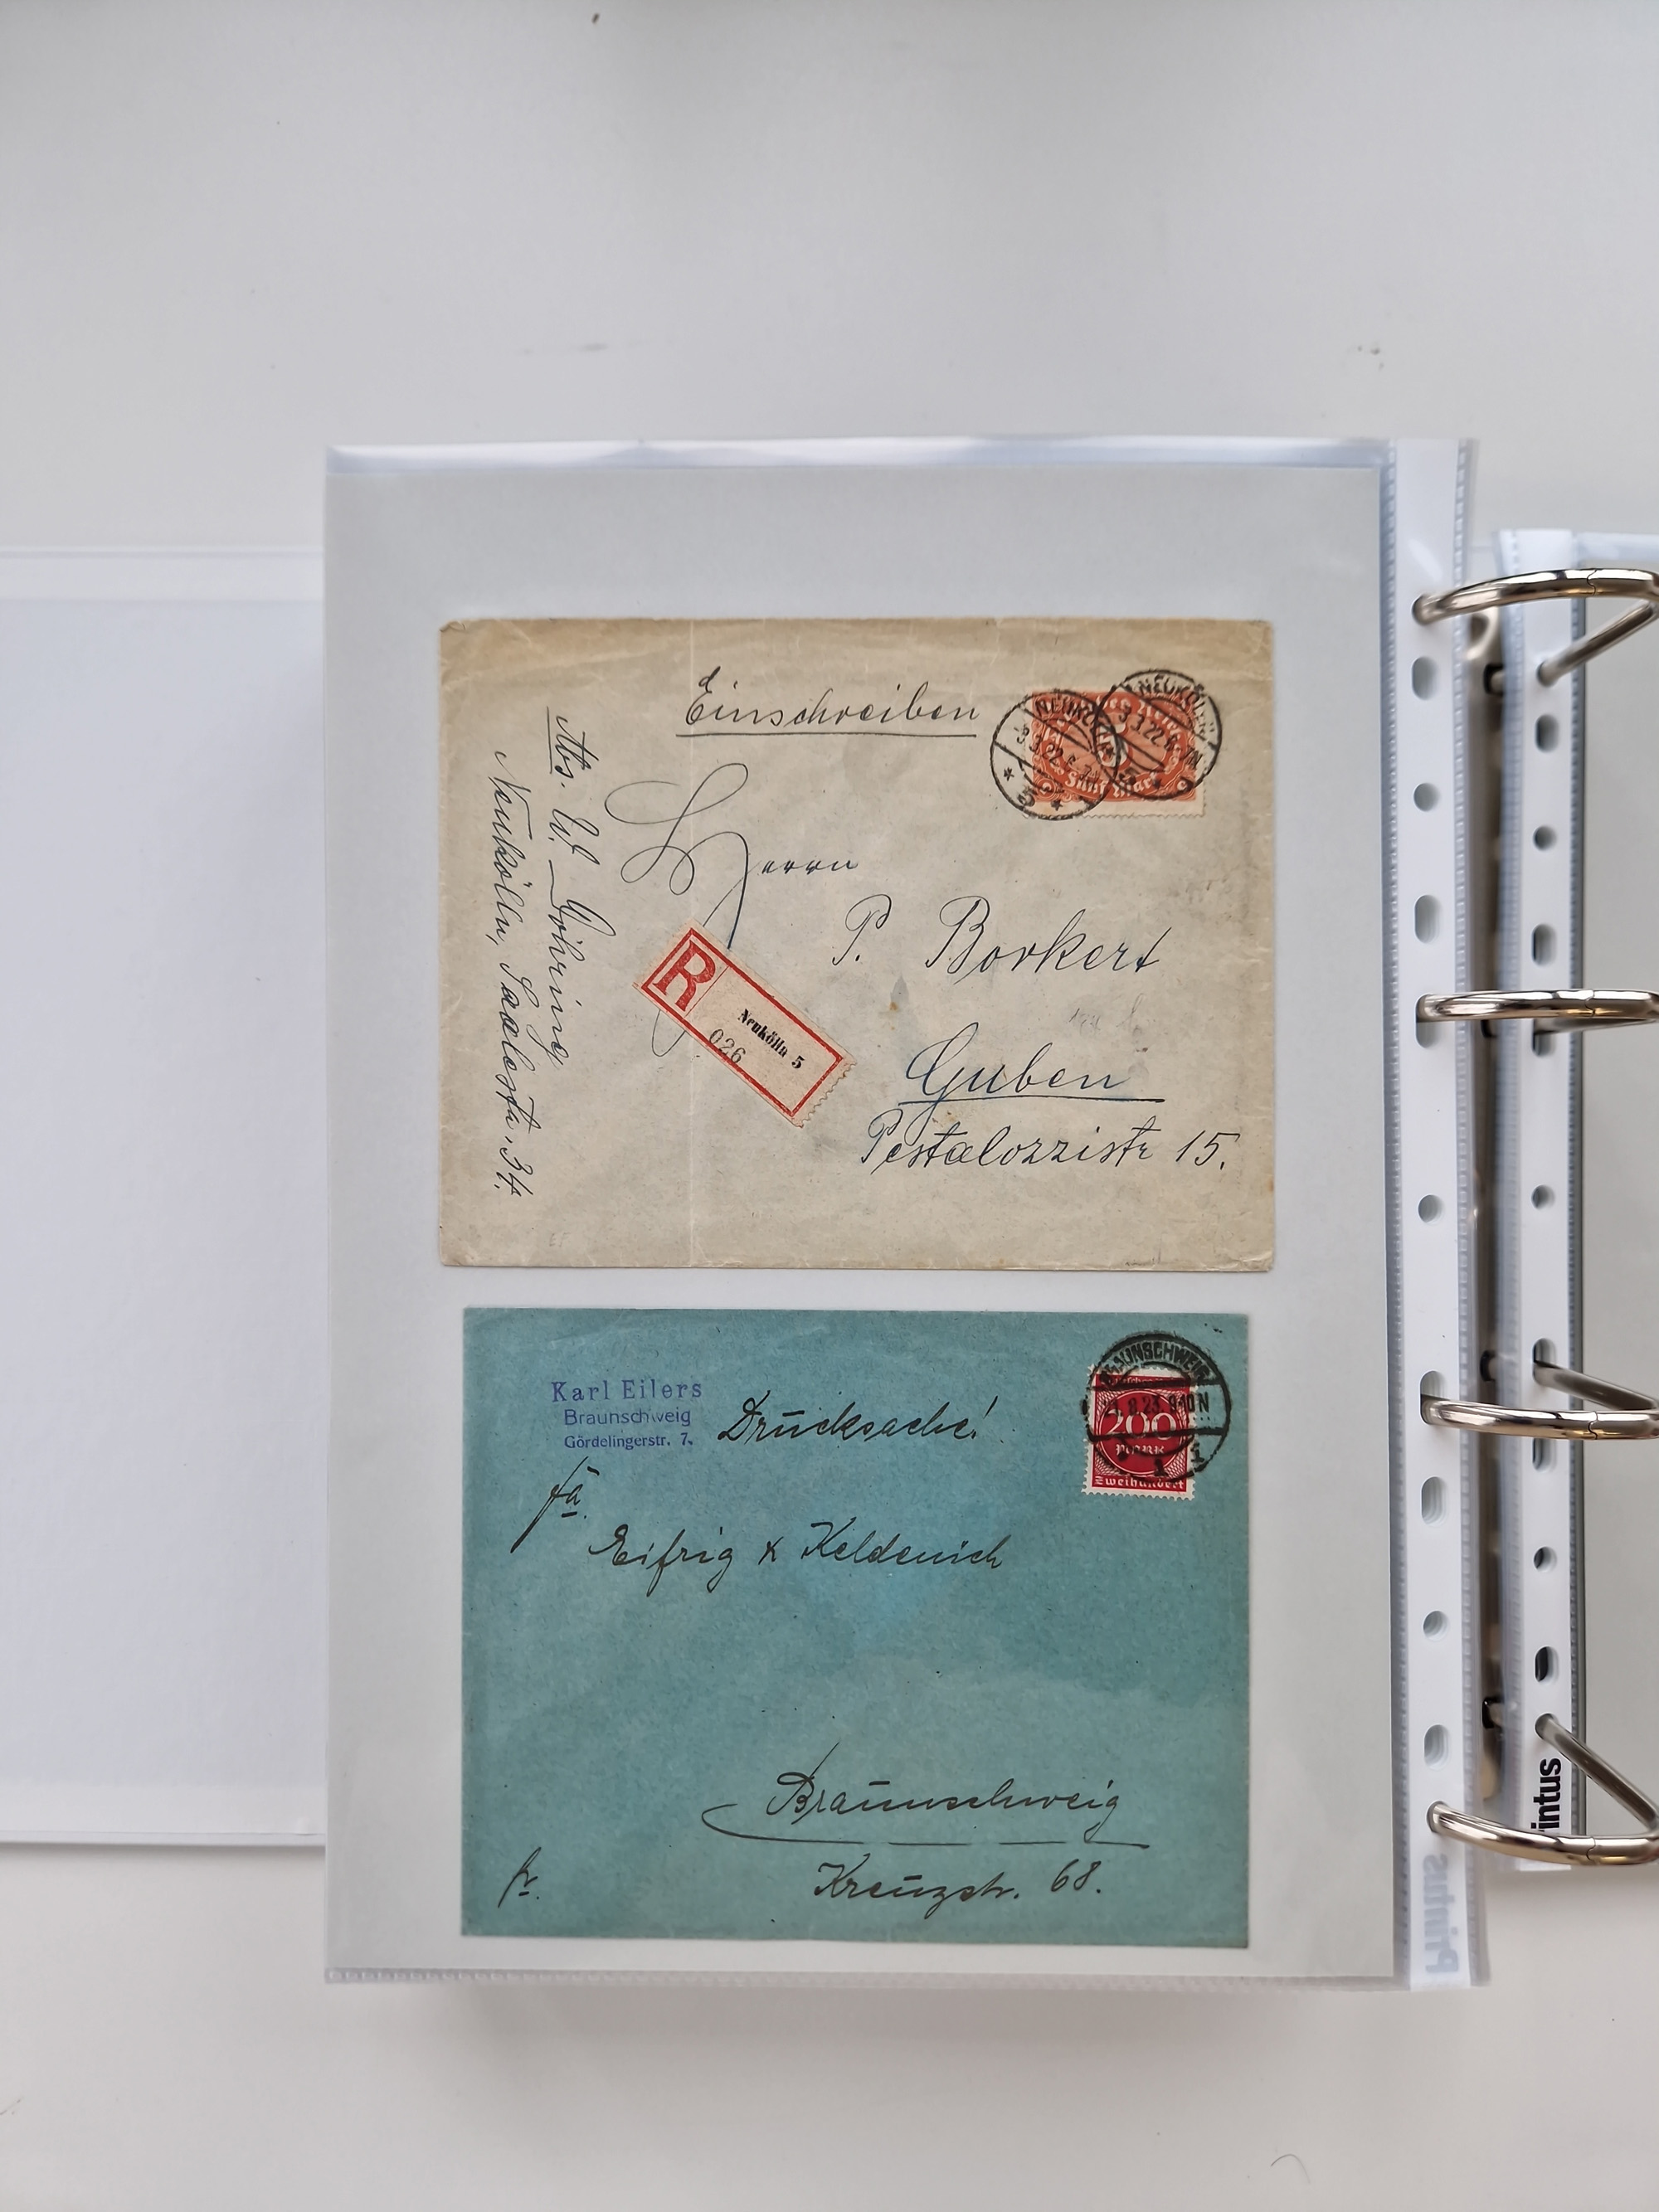 Einschreiben
NEUKÖLLN
3.3.22.6-7N
Fünf Mark
Herrn
P. Borkert
Guben
Pestalozzistr 15.
R
Neukölln 5
026
Abs. W. Göhring
Neukölln, Saalestr. 34.
Karl Eilers
Braunschweig
Gördelingerstr. 7.
Drucksache!
BRAUNSCHWEIG
8.23. 9-10N
200
MARK
Zweihundert
Fa.
Eifrig & Keldenich
Braunschweig
Kreuzstr. 68.
fr.
intus
Printus